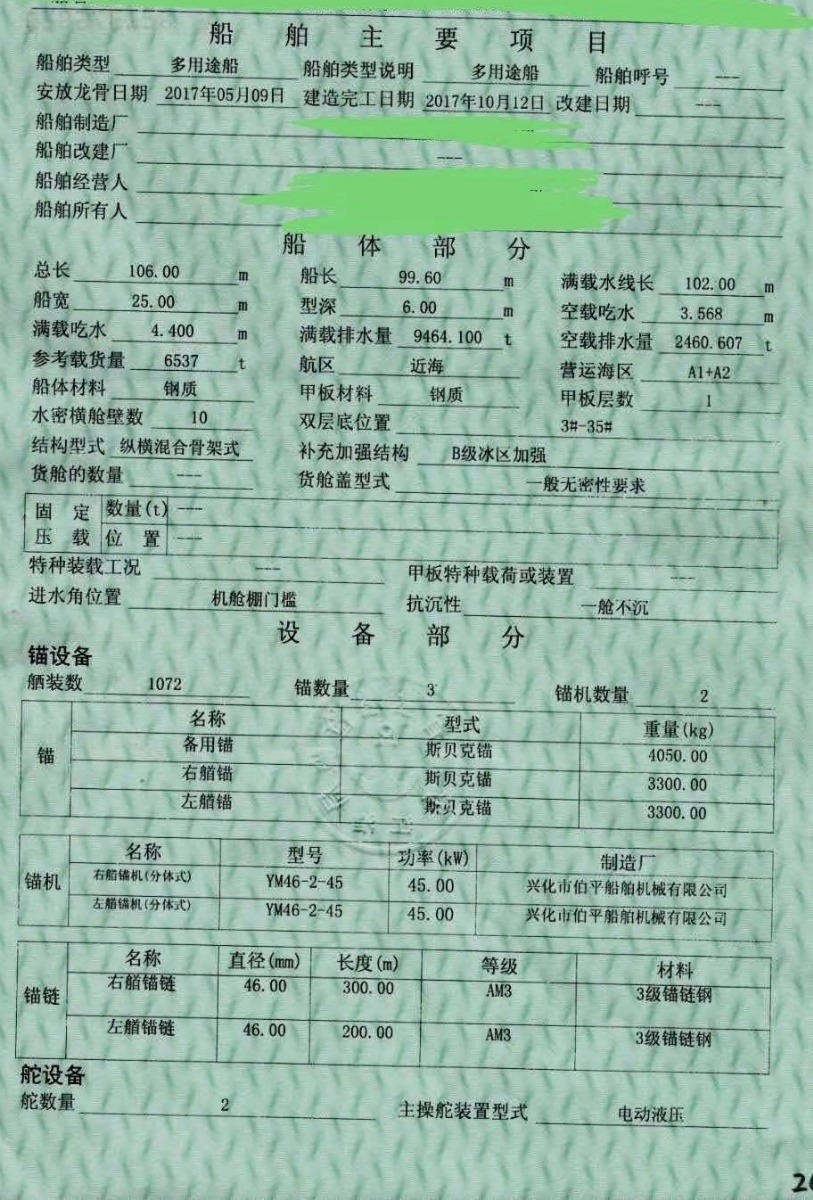 船舶主要项目
船舶类型 多用途船 船舶类型说明 多用途船 船舶呼号 ---
安放龙骨日期 2017年05月09日 建造完工日期 2017年10月12日 改建日期 ---
船舶制造厂
船舶改建厂 ---
船舶经营人
船舶所有人
船体部分
总长 106.00 m 船长 99.60 m 满载水线长 102.00 m
船宽 25.00 m 型深 6.00 m 空载吃水 3.568 m
满载吃水 4.400 m 满载排水量 9464.100 t 空载排水量 2460.607 t
参考载货量 6537 t 航区 近海 营运海区 A1+A2
船体材料 钢质 甲板材料 钢质 甲板层数 1
水密横舱壁数 10 双层底位置 3#-35#
结构型式 纵横混合骨架式 补充加强结构 B级冰区加强
货舱的数量 --- 货舱盖型式 一般无密性要求
固定压载 数量(t) ---
位置 ---
特种装载工况 --- 甲板特种载荷或装置 ---
进水角位置 机舱棚门槛 抗沉性 一舱不沉
设备部分
锚设备
舾装数 1072 锚数量 3 锚机数量 2
锚 名称 型式 重量(kg)
备用锚 斯贝克锚 4050.00
右艏锚 斯贝克锚 3300.00
左艏锚 斯贝克锚 3300.00
锚机 名称 型号 功率(kW) 制造厂
右艏锚机(分体式) YM46-2-45 45.00 兴化市伯平船舶机械有限公司
左艏锚机(分体式) YM46-2-45 45.00 兴化市伯平船舶机械有限公司
锚链 名称 直径(mm) 长度(m) 等级 材料
右艏锚链 46.00 300.00 AM3 3级锚链钢
左艏锚链 46.00 200.00 AM3 3级锚链钢
舵设备
舵数量 2 主操舵装置型式 电动液压